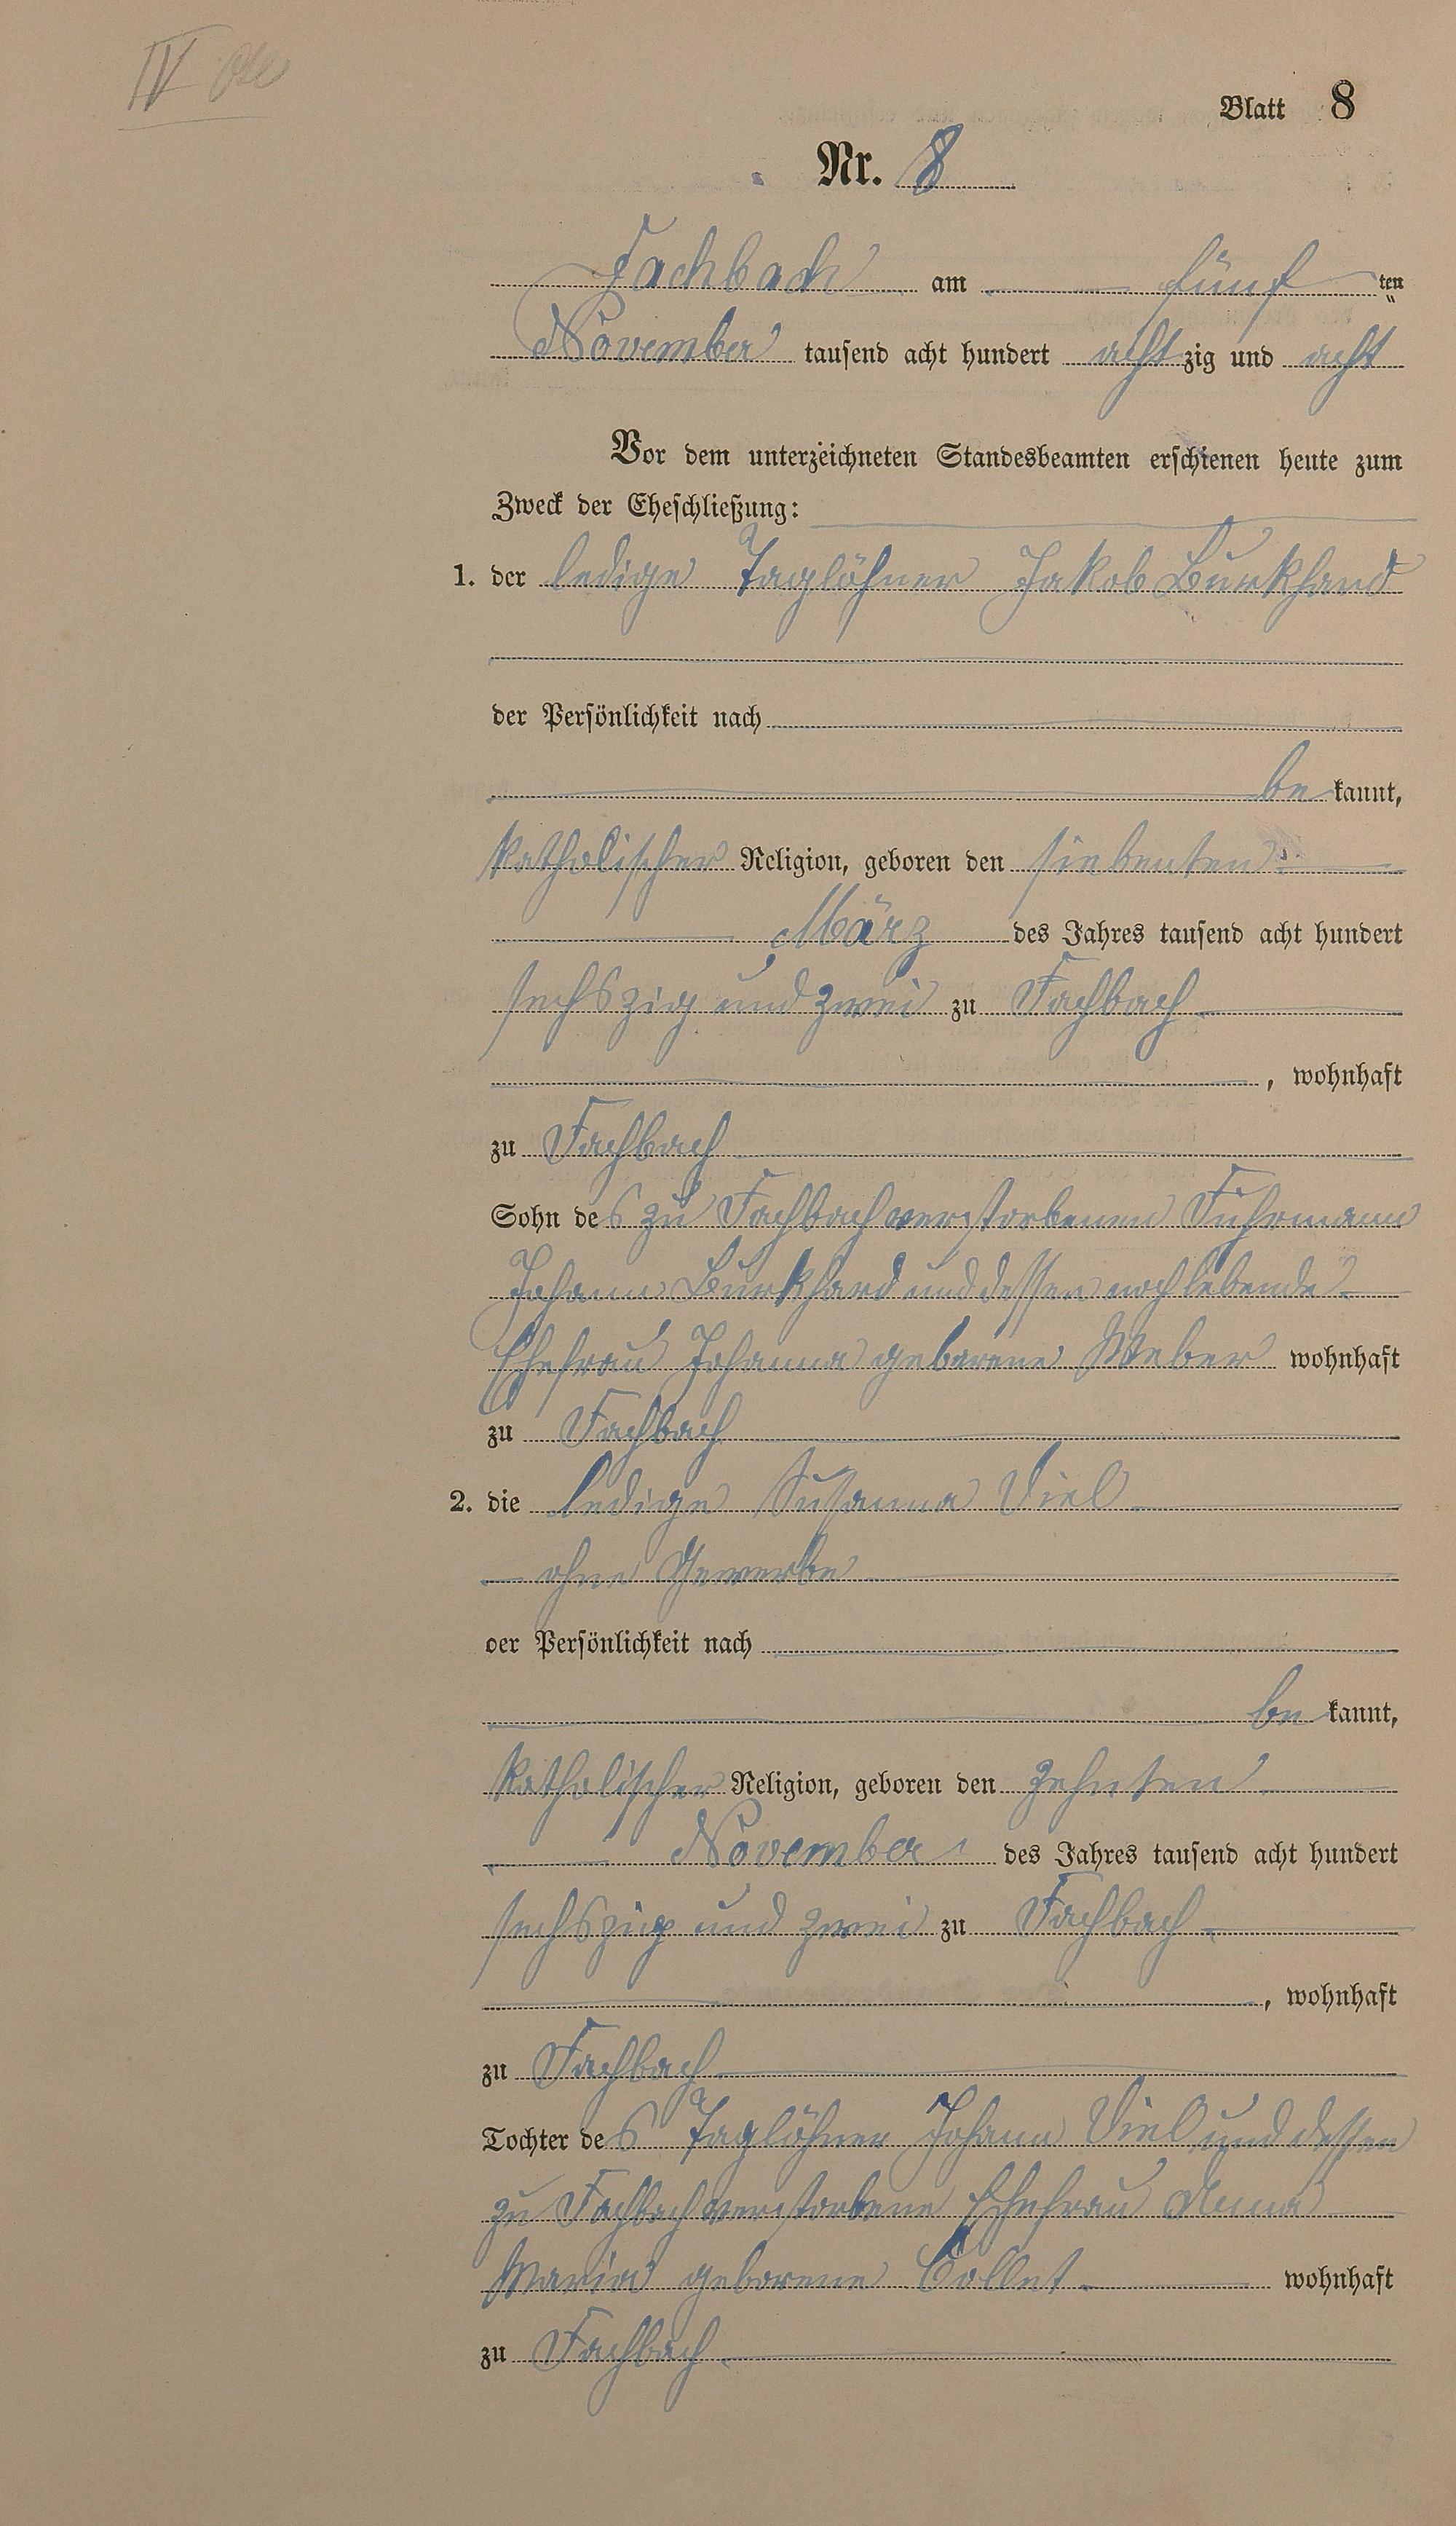 IV
Blatt 8
Nr. 8
Fachbach am fünf ten
November tausend acht hundert acht zig und acht
Vor dem unterzeichneten Standesbeamten erschienen heute zum
Zweck der Eheschließung:
1. der ledige Taglöhner Jakob Burkhard
der Persönlichkeit nach
be kannt,
katholischer Religion, geboren den siebenten
März des Jahres tausend acht hundert
sechszig und zwei zu Fachbach
, wohnhaft
zu Fachbach
Sohn des zu Fachbach verstorbenen Fuhrmann
Johann Burkhard und dessen noch lebende
Ehefrau Johanna geborene Weber wohnhaft
zu Fachbach
2. die ledige Susanna Viel
ohne Gewerbe
der Persönlichkeit nach
be kannt,
katholischer Religion, geboren den zehnten
November des Jahres tausend acht hundert
sechszig und zwei zu Fachbach
, wohnhaft
zu Fachbach
Tochter des Taglöhner Johann Viel und dessen
zu Fachbach verstorbene Ehefrau Anna
Maria geborene Collet wohnhaft
zu Fachbach